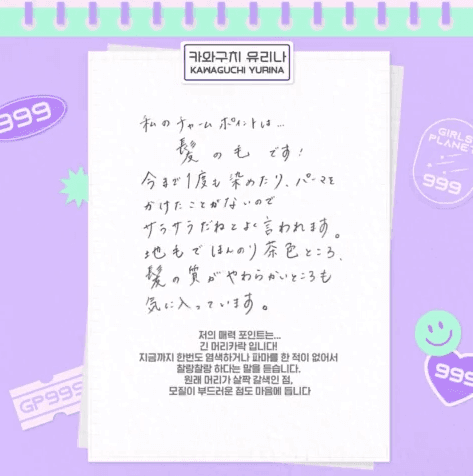 카와구치 유리나
KAWAGUCHI YURINA
999
GIRLS
PLANET
999
私のチャームポイントは...
髪の毛です!
今まで1度も染めたり、パーマを
かけたことがないので
サラサラだねとよく言われます。
地毛でほんのり茶色ところ、
髪の質がやわらかいところも
気に入っています。
저의 매력 포인트는...
긴 머리카락 입니다!
지금까지 한번도 염색하거나 파마를 한 적이 없어서
찰랑찰랑 하다는 말을 듣습니다.
원래 머리가 살짝 갈색인 점,
모질이 부드러운 점도 마음에 듭니다
GP999
999